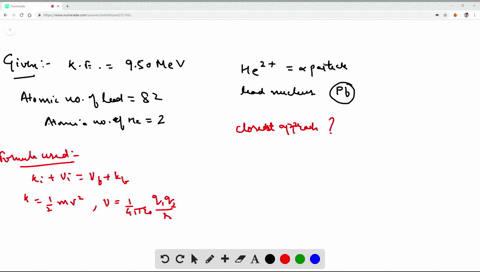 Numerade
Given:- K.E. = 9.50 MeV
Atomic no. of lead = 82
Atomic no. of He = 2
He²⁺ = α particle
lead nucleus Pb
closest approach ?
Formula used:-
Ki + Vi = Vf + Kf
K = 1/2 mv² , V = 1/4πε₀ q₁q₂/r